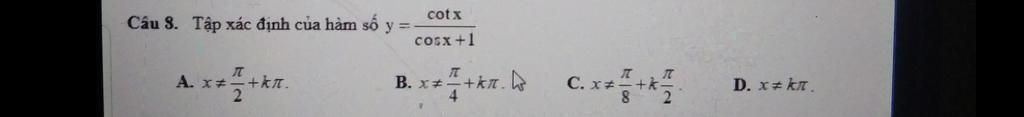 Câu 8. Tập xác định của hàm số y = \frac{cot x}{cosx +1}
A. x ≠ \frac{π}{2} + kπ. B. x ≠ \frac{π}{4} + kπ. C. x ≠ \frac{π}{8} + k\frac{π}{2}. D. x ≠ kπ.